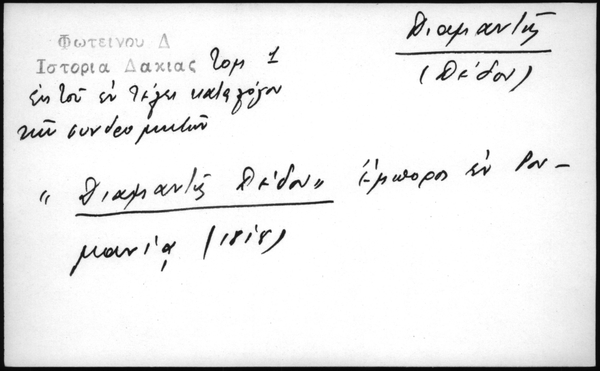 Φωτεινου Δ
Ιστορια Δακιας τομ 1
εκ του εν τέλει καταλόγου
των συνδρομητών
Διαμαντής
(Δέδου)
« Διαμαντής Δέδου » έμπορος εν Ρου-
μανία (1818)